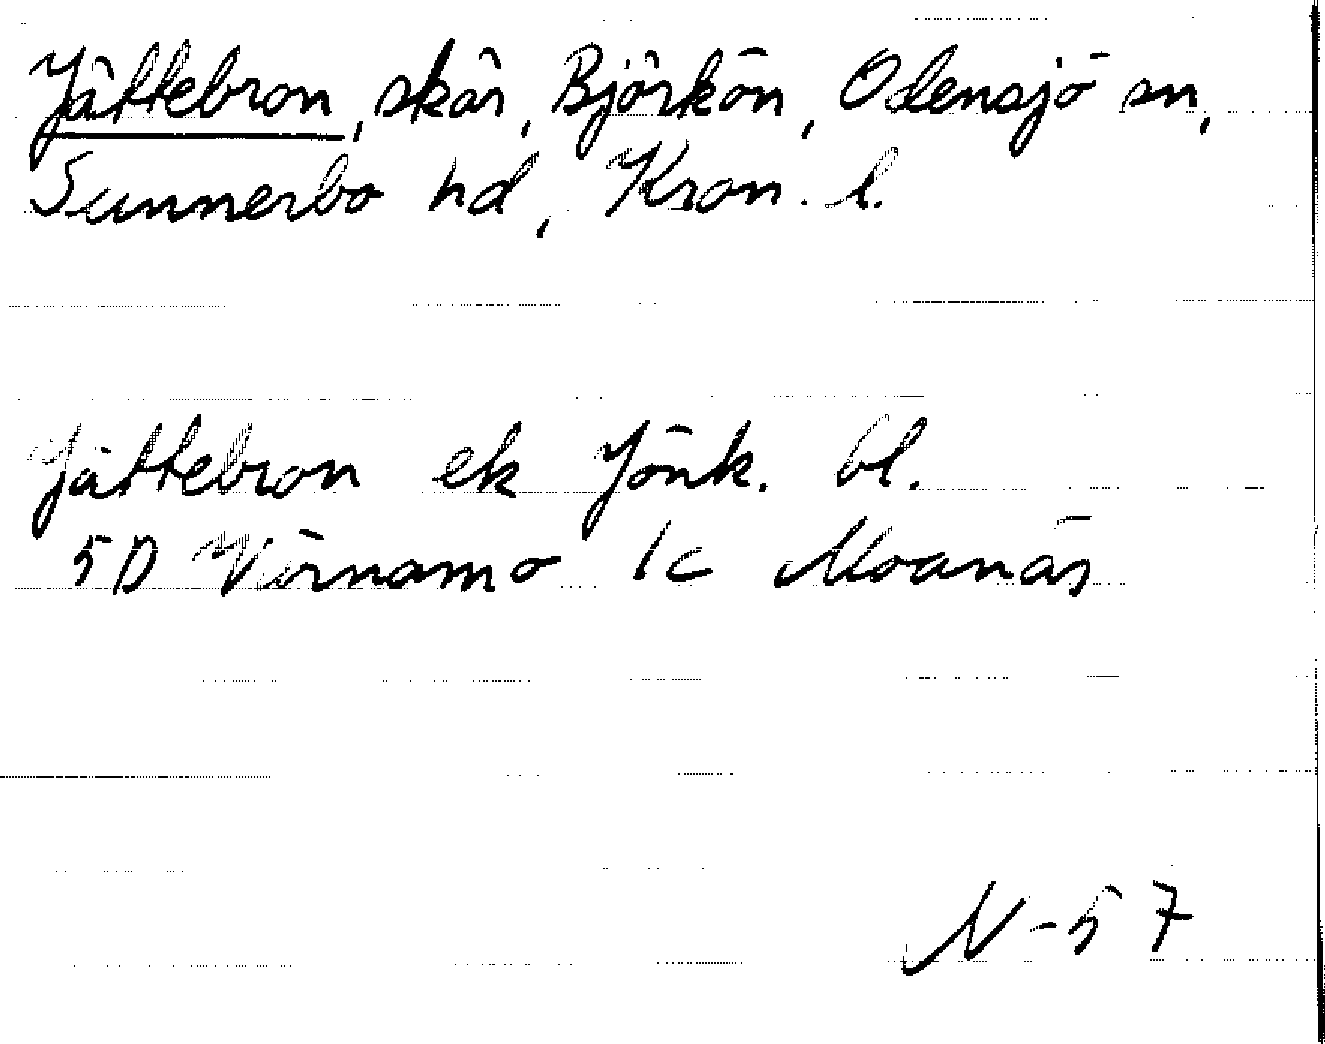 Jättebron, skär, Björkön, Odensjö sn,
Sunnerbo hd, Kron. l.
Jättebron ek Jönk. bl.
5D Värnamo 1c Moanäs
N-57